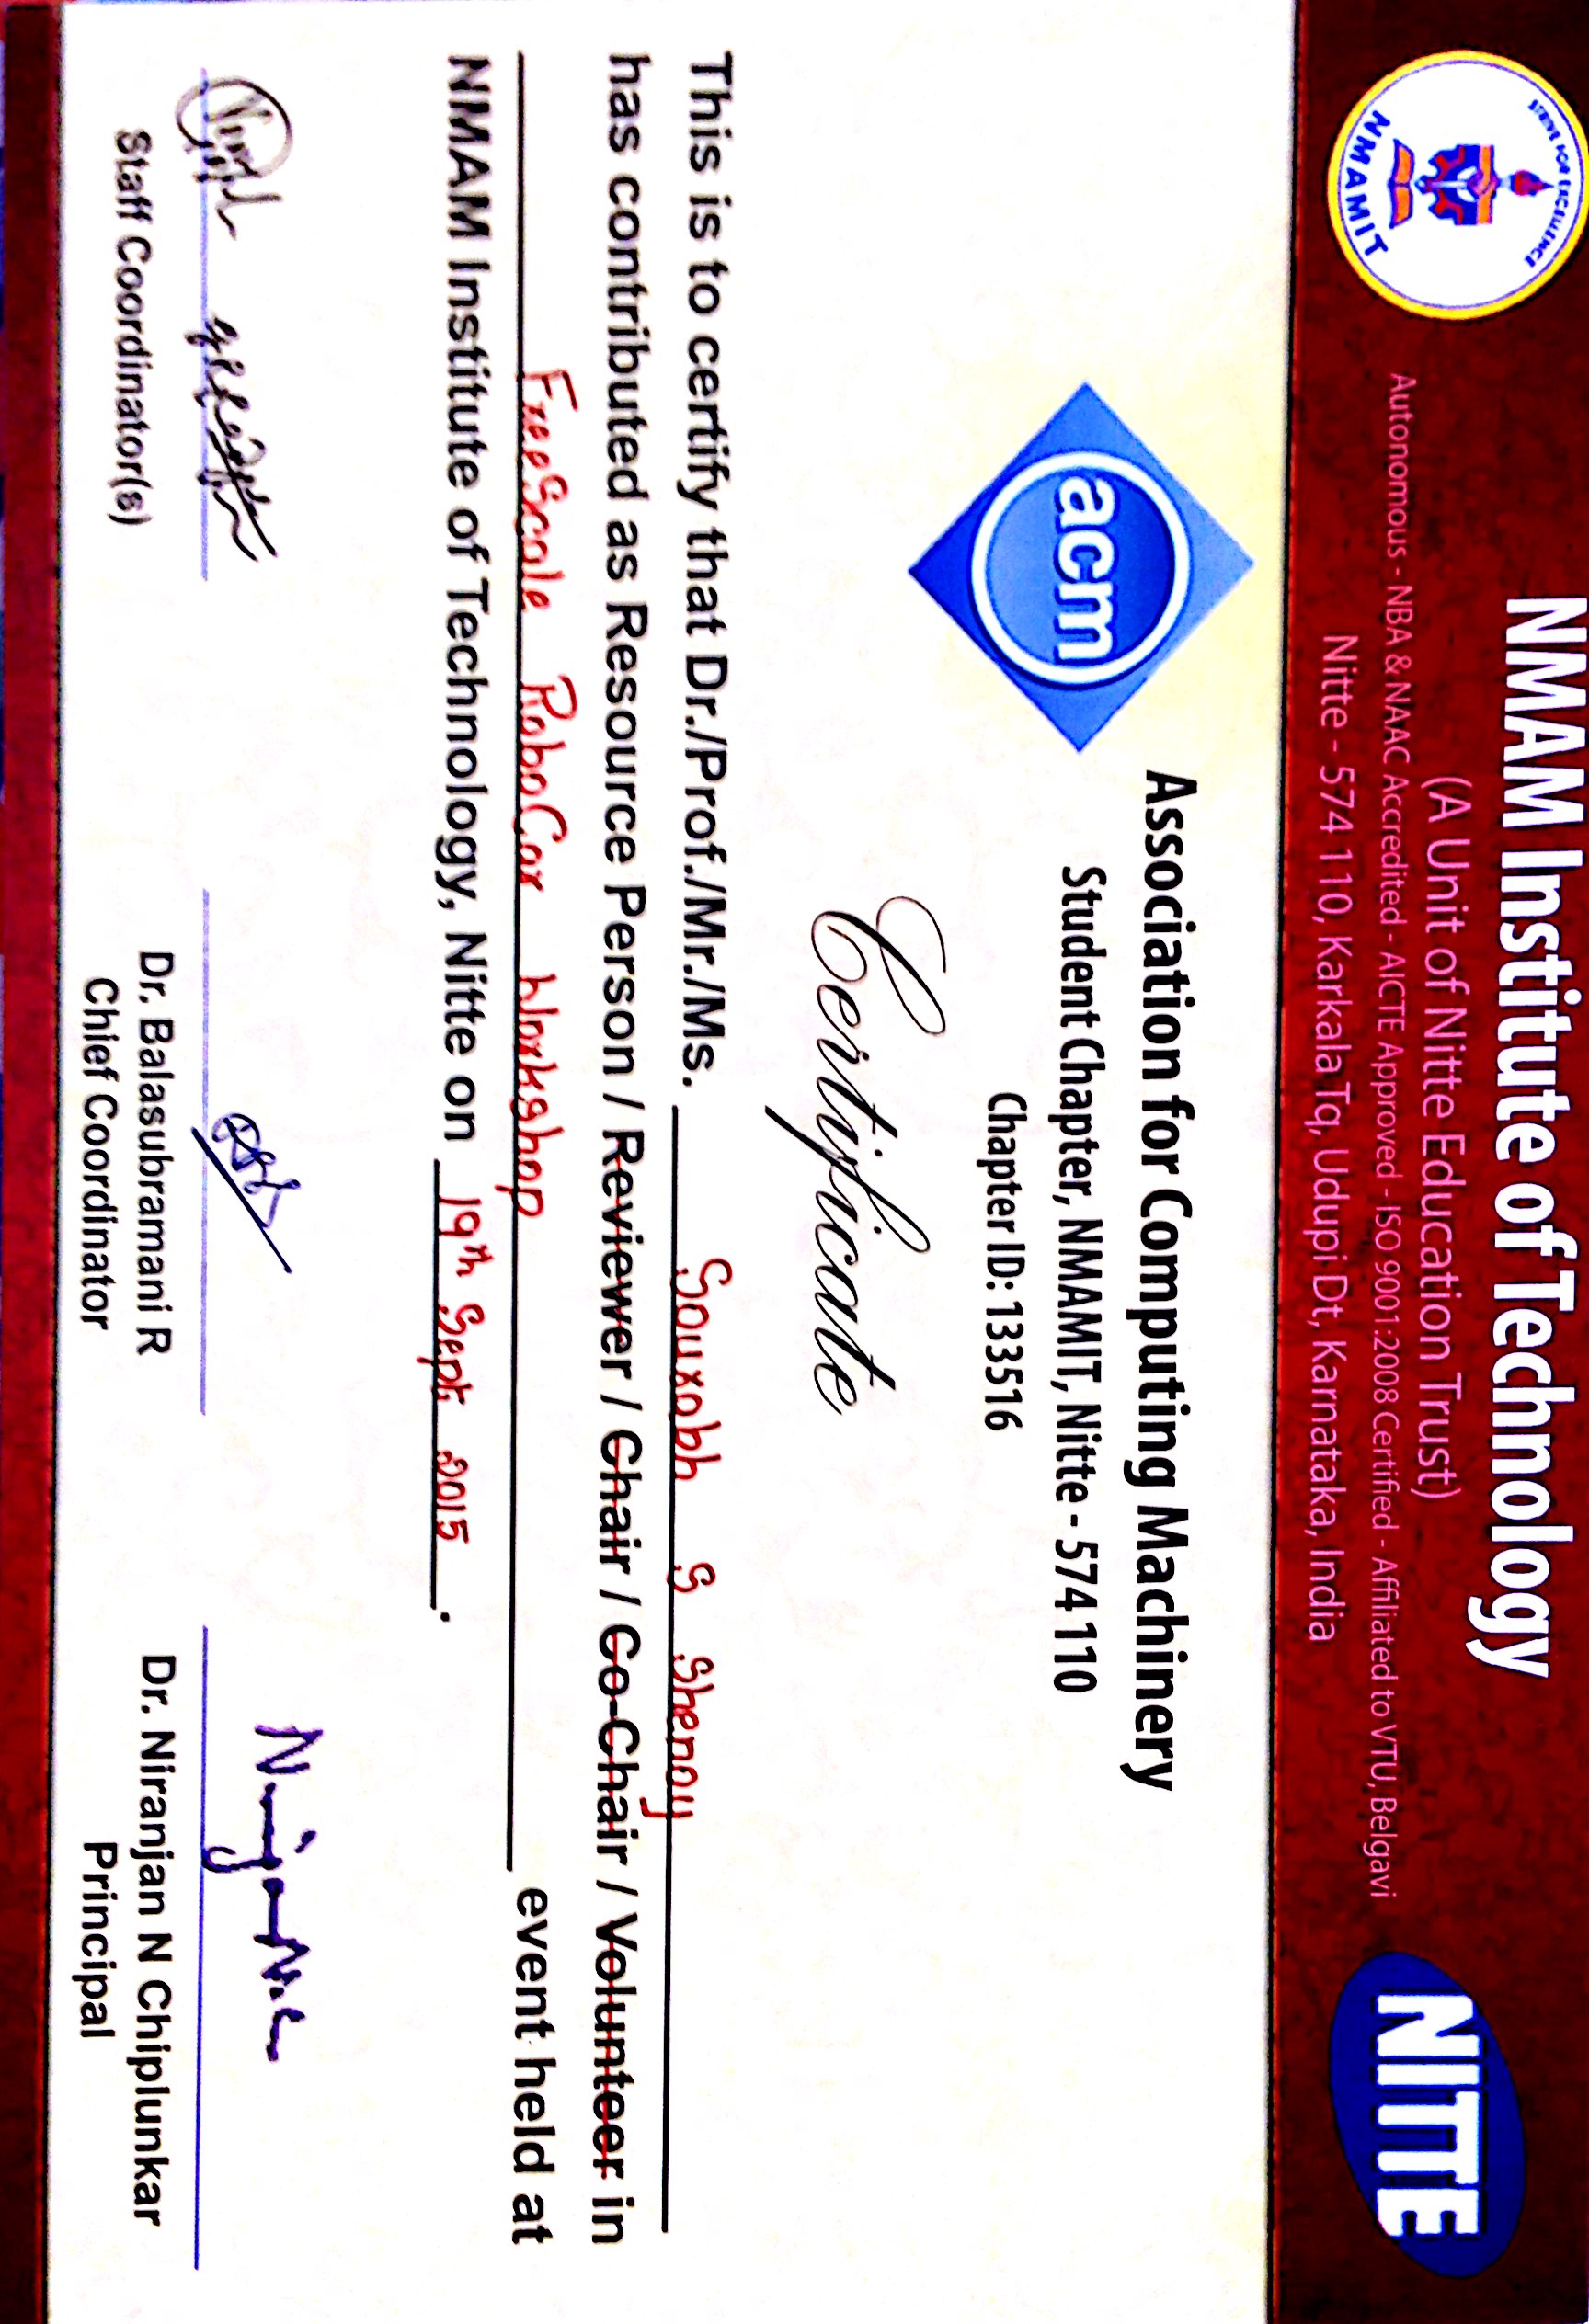 STRIVE FOR EXCELLENCE
NMAMIT
NMAM Institute of Technology
(A Unit of Nitte Education Trust)
Autonomous - NBA & NAAC Accredited - AICTE Approved - ISO 9001:2008 Certified - Affiliated to VTU, Belgavi
Nitte - 574 110, Karkala Tq, Udupi Dt, Karnataka, India
NITTE
acm
Association for Computing Machinery
Student Chapter, NMAMIT, Nitte - 574 110
Chapter ID: 133516
Certificate
This is to certify that Dr./Prof./Mr./Ms. Sourabh S Shenoy
has contributed as Resource Person / Reviewer / Chair / Co-Chair / Volunteer in
FreeScale RoboCar Workshop event held at
NMAM Institute of Technology, Nitte on 19th Sept 2015.
Staff Coordinator(s)
Dr. Balasubramani R
Chief Coordinator
Dr. Niranjan N Chiplunkar
Principal